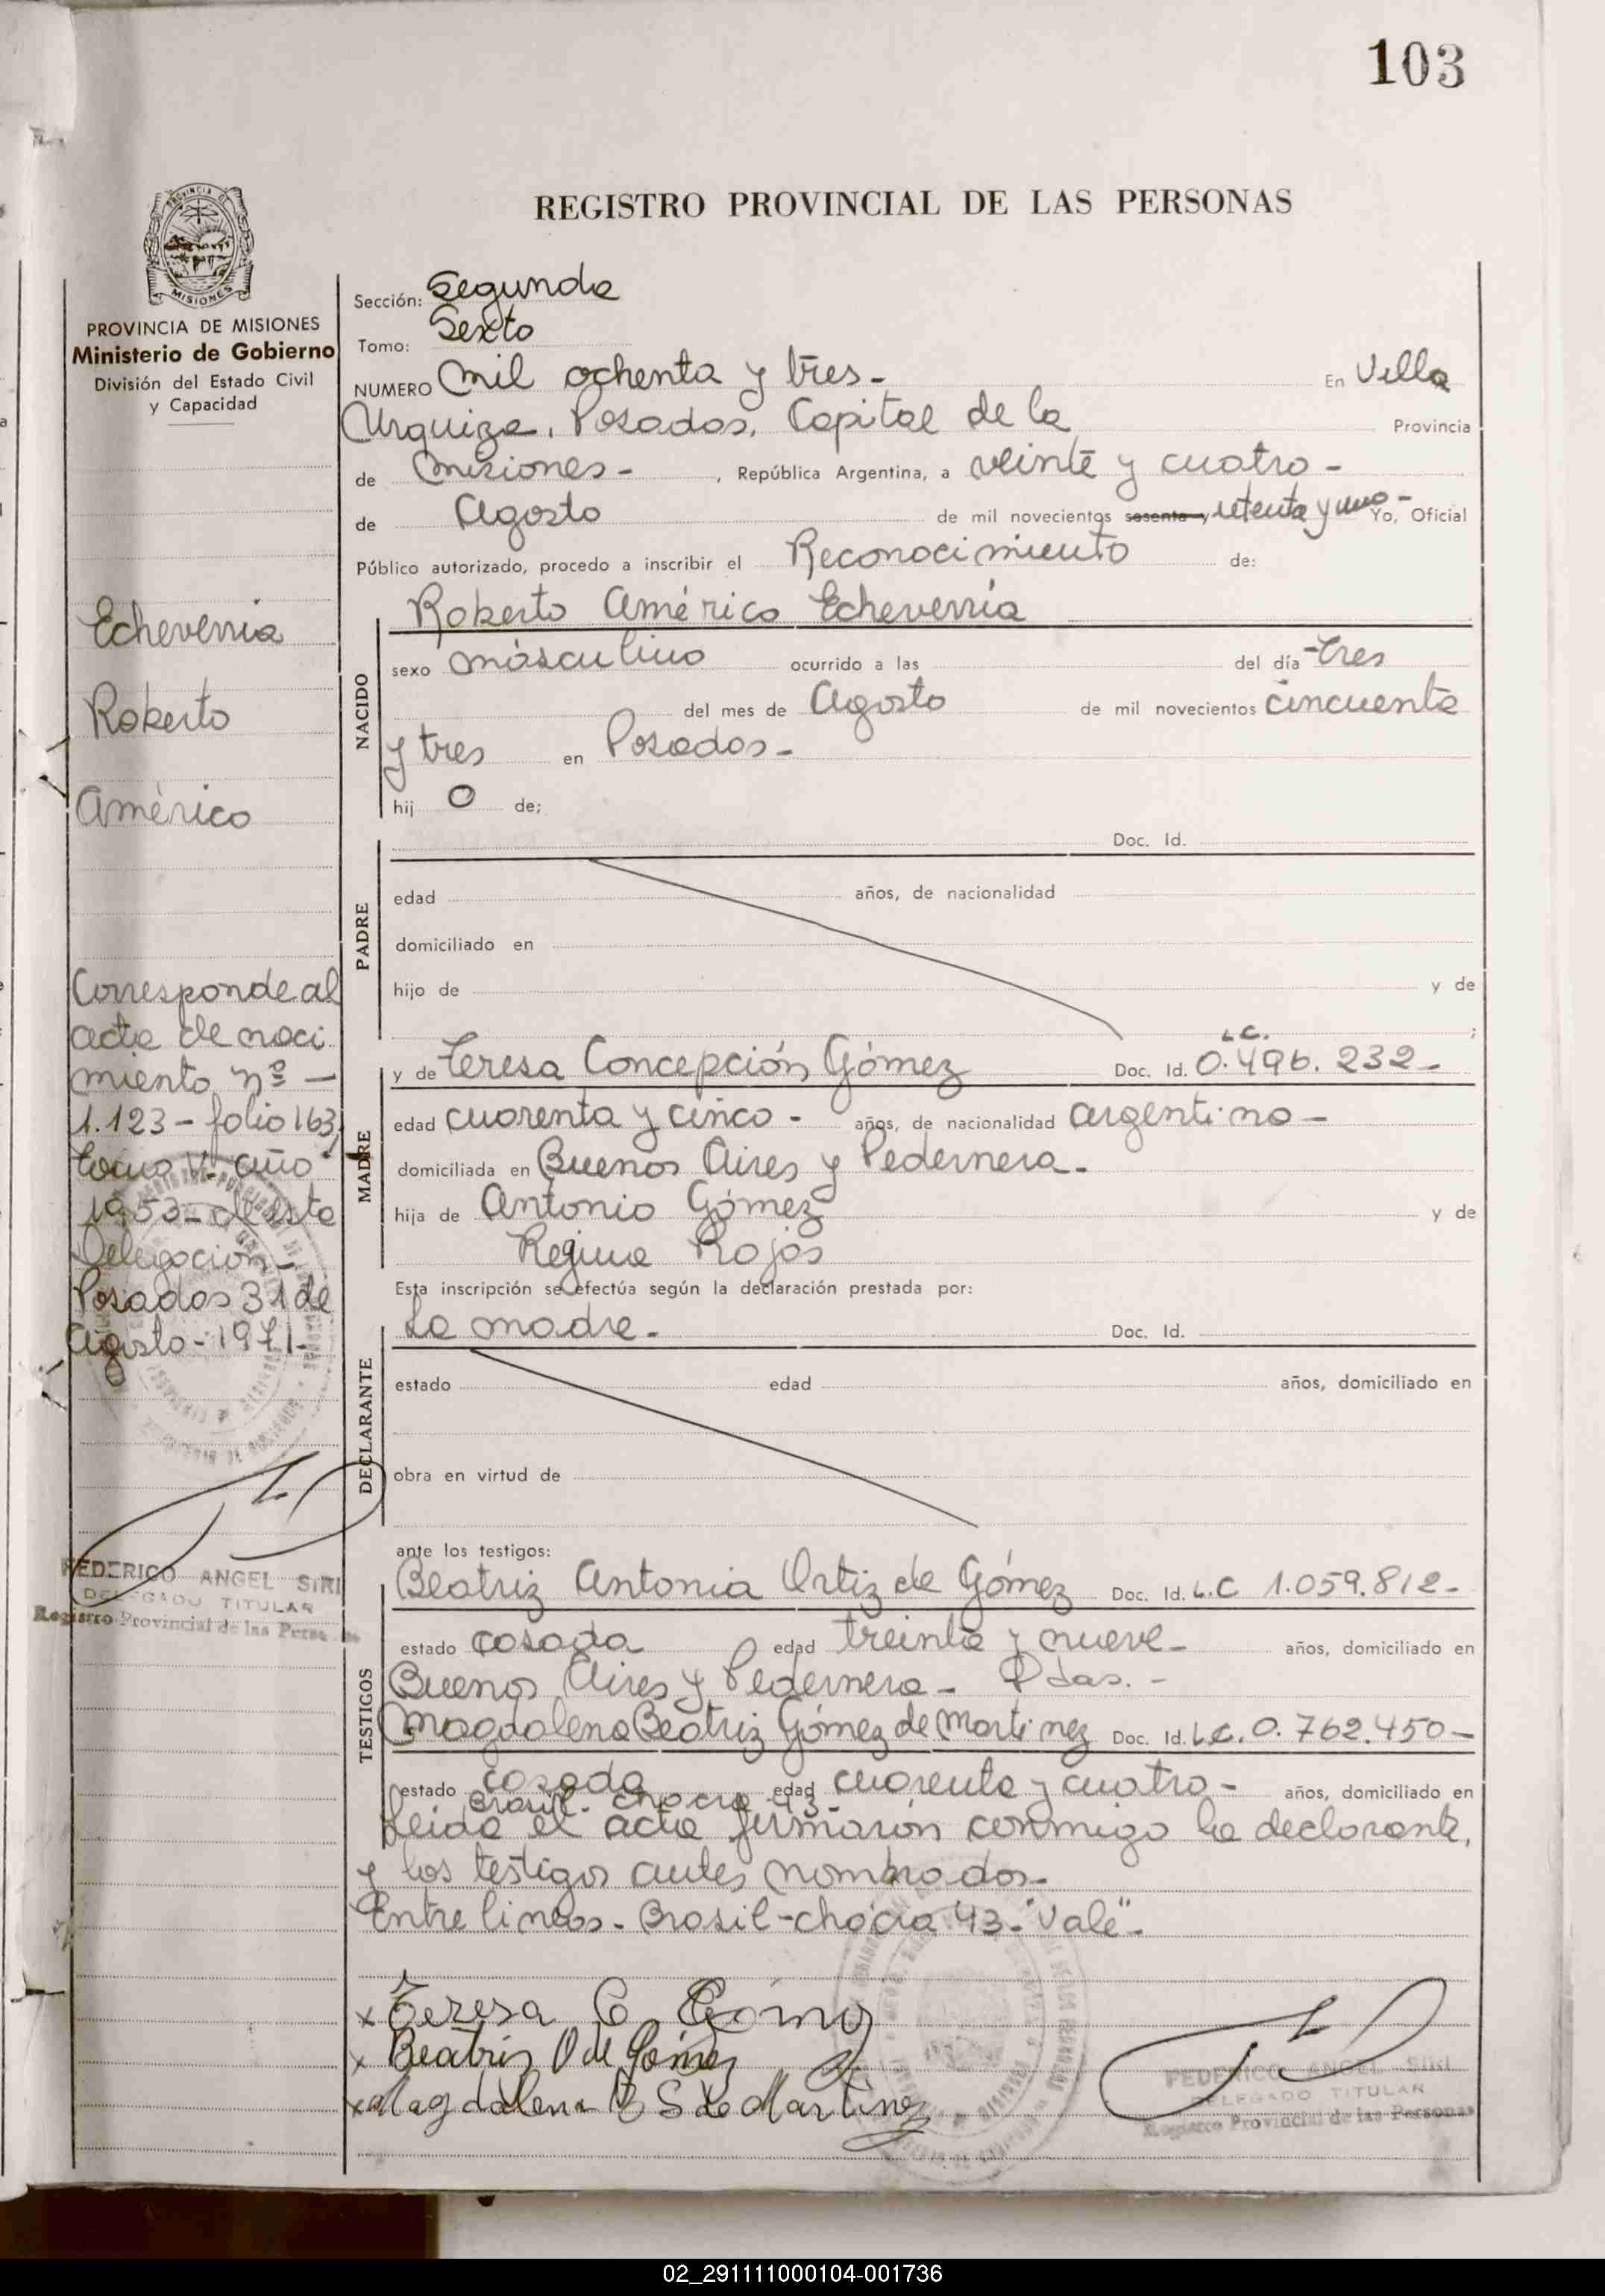 103
PROVINCIA DE MISIONES
Ministerio de Gobierno
División del Estado Civil
y Capacidad
Echeverria
Roberto
Américo
Corresponde al
acta de naci
miento nº -
1.123 - folio 163,
tomo V. año
1953 - de esta
Delegación -
Posadas 31 de
Agosto - 1971 -
FEDERICO ANGEL SIRI
DELEGADO TITULAR
Registro Provincial de las Personas
REGISTRO PROVINCIAL DE LAS PERSONAS
Sección: Segunda
Tomo: Sexto
NUMERO mil ochenta y tres - En Villa
Urquiza, Posadas, Capital de la Provincia
de Misiones - , República Argentina, a veinte y cuatro -
de Agosto de mil novecientos sesenta y setenta y uno - Yo, Oficial
Público autorizado, procedo a inscribir el Reconocimiento de:
Roberto Américo Echeverría
NACIDO
sexo másculino ocurrido a las del día tres
del mes de Agosto de mil novecientos cincuenta
y tres en Posadas -
hij o de;
PADRE
Doc. Id.
edad años, de nacionalidad
domiciliado en
hijo de y de
;
MADRE
L.C.
y de Teresa Concepción Gómez Doc. Id. 0.496.232 -
edad cuarenta y cinco - años, de nacionalidad argentina -
domiciliada en Buenos Aires y Pedernera -
hija de Antonio Gómez y de
Regina Rojas
Esta inscripción se efectúa según la declaración prestada por:
DECLARANTE
La madre - Doc. Id.
estado edad años, domiciliado en
obra en virtud de
ante los testigos:
TESTIGOS
Beatriz Antonia Ortiz de Gómez Doc. Id. L.C 1.059.812 -
estado casada edad treinta y nueve - años, domiciliado en
Buenos Aires y Pedernera - Pdas. -
Magdalena Beatriz Gómez de Martinez Doc. Id. L.C. 0.762.450 -
estado casada edad cuarenta y cuatro - años, domiciliado en
Brasil - chacra 43 -
Leida el acta firmaron conmigo la declarante,
y los testigos antes nombrados -
Entre lineas - Brasil - chacra 43 - "Vale" -
x Teresa C Gómez
x Beatriz O de Gómez
x Magdalena B G de Martinez
FEDERICO ANGEL SIRI
DELEGADO TITULAR
Registro Provincial de las Personas
02_291111000104-001736